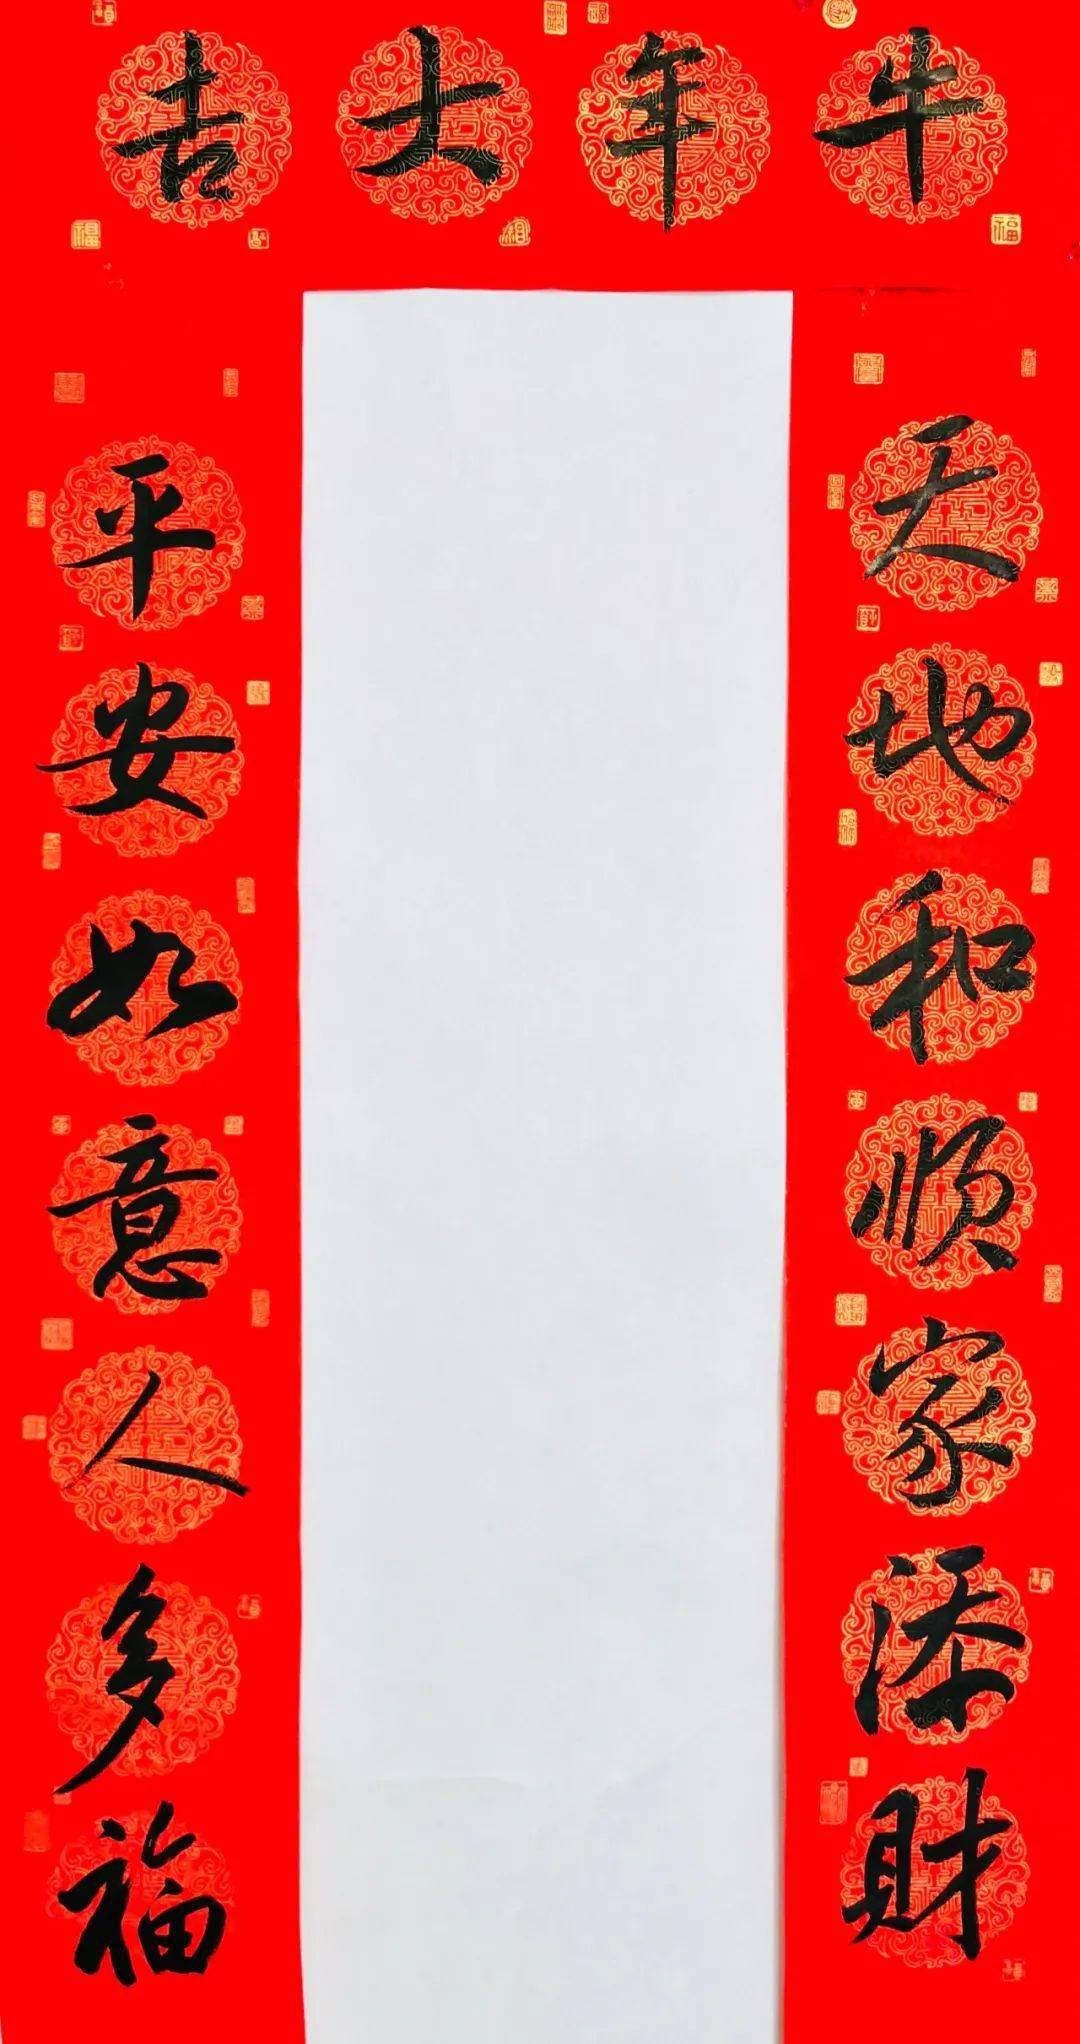 天地和顺家添财
平安如意人多福
牛年大吉